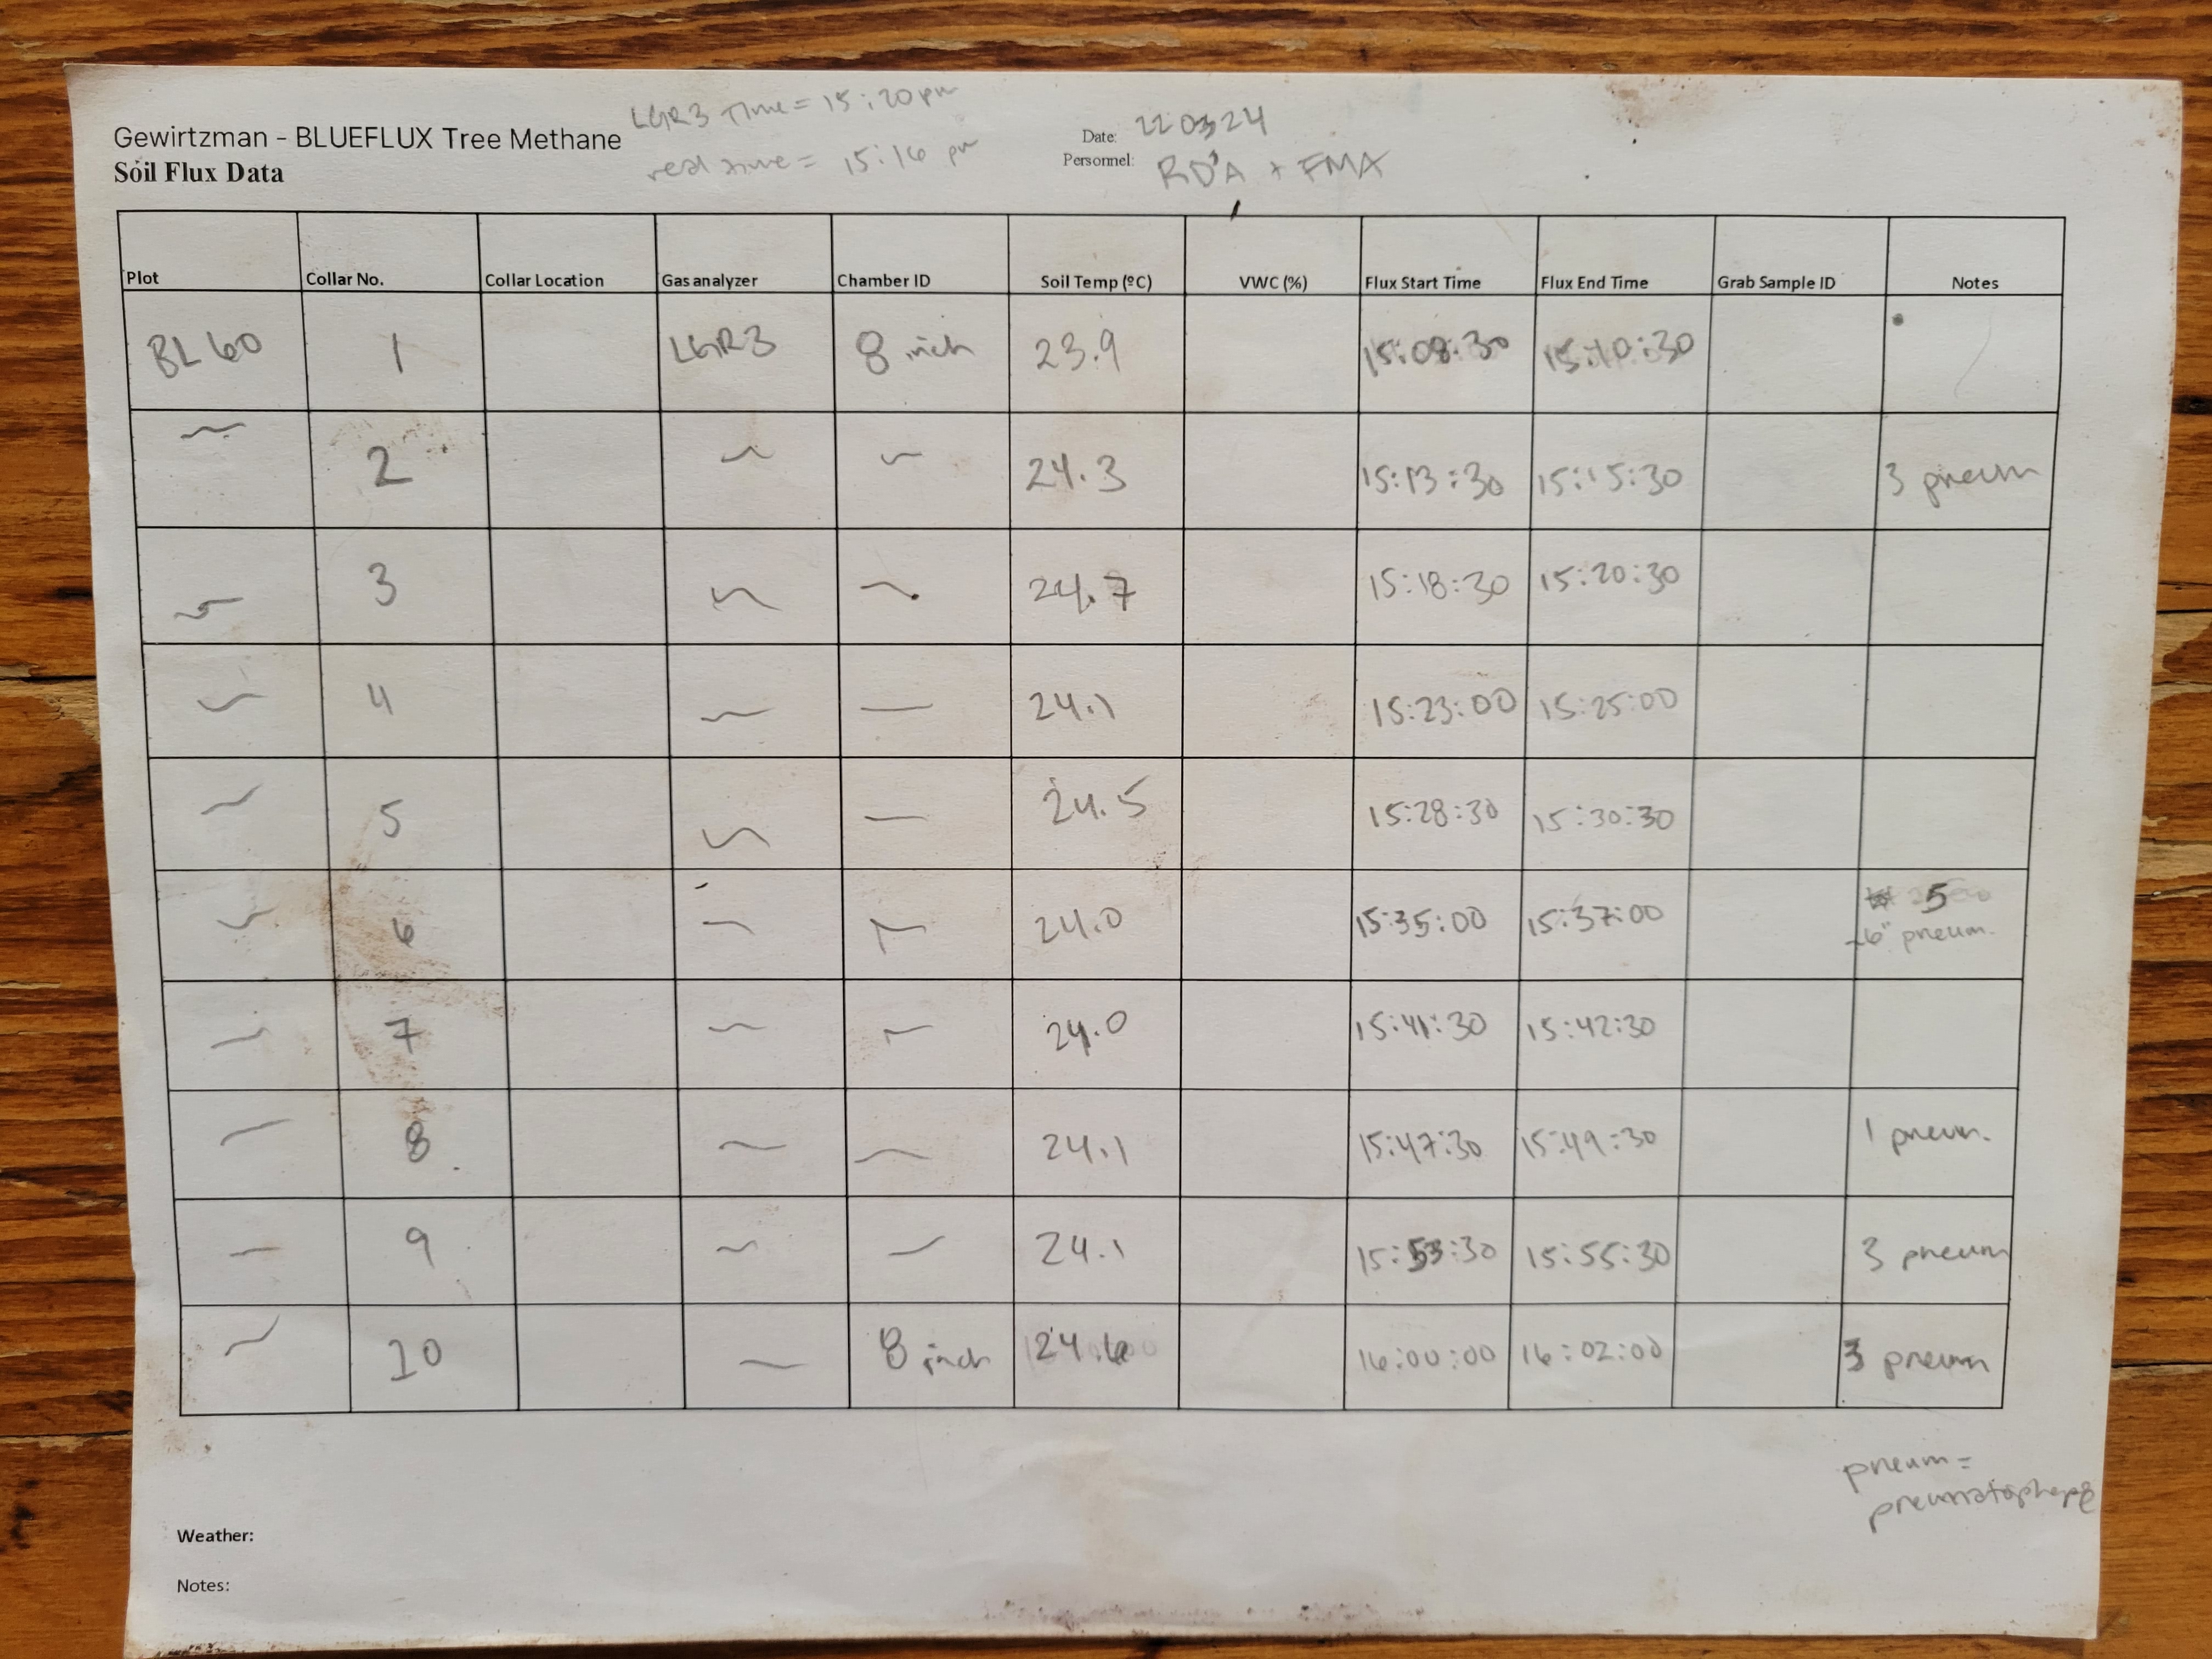 Gewirtzman - BLUEFLUX Tree Methane LGR3 Time = 15:20 pm Date: 22.03.24
Soil Flux Data real time = 15:16 pm Personnel: RO'A + FMX
Plot Collar No. Collar Location Gas analyzer Chamber ID Soil Temp (ºC) VWC (%) Flux Start Time Flux End Time Grab Sample ID Notes
BL60 1 LGR3 8 inch 23.9 15:08:30 15:10:30
~ 2 ~ ~ 24.3 15:13:30 15:15:30 3 pneum
~ 3 ~ ~ 24.7 15:18:30 15:20:30
~ 4 ~ ~ 24.1 15:23:00 15:25:00
~ 5 ~ ~ 24.5 15:28:30 15:30:30
~ 6 ~ ~ 24.0 15:35:00 15:37:00 5 pneum.
~ 7 ~ ~ 24.0 15:41:30 15:42:30
~ 8 ~ ~ 24.1 15:47:30 15:49:30 1 pneum.
~ 9 ~ ~ 24.1 15:53:30 15:55:30 3 pneum
~ 10 ~ 8 inch 24.6 16:00:00 16:02:00 3 pneum
pneum =
pneumatophore
Weather:
Notes: